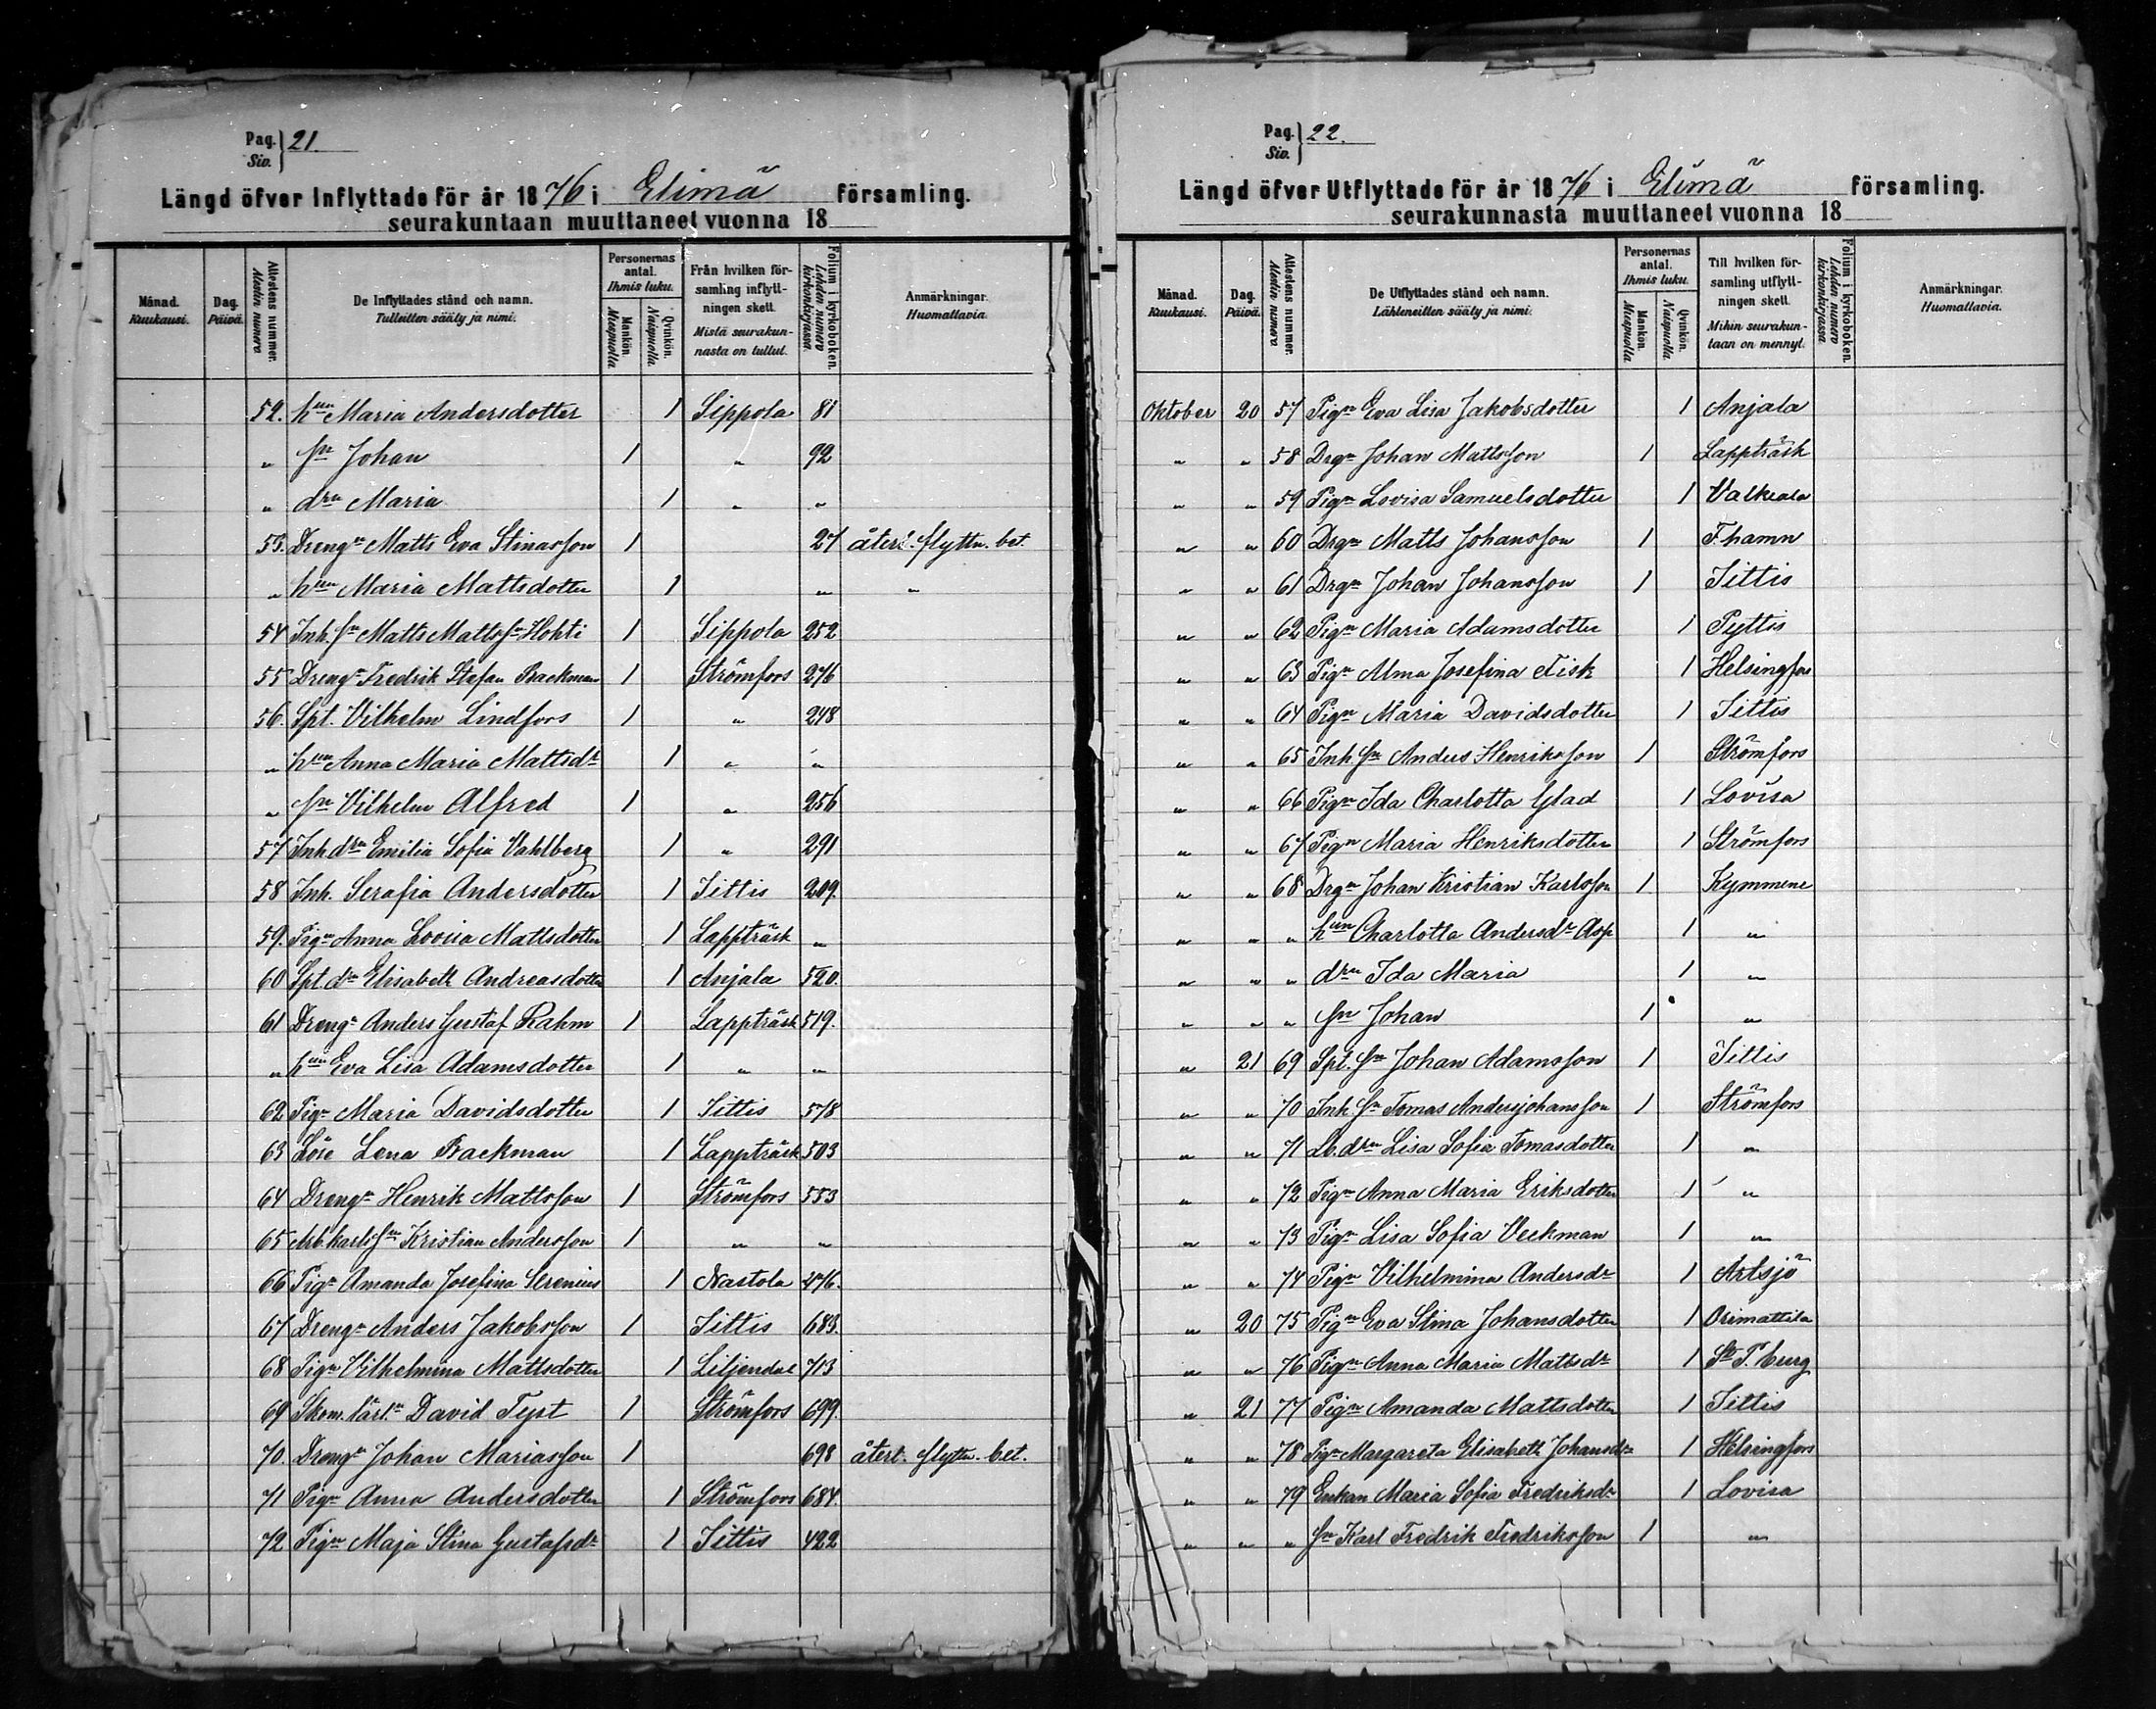 Pag. 21.
Siv.
Längd öfver Inflyttade för år 1876 i Elimä församling.
seurakuntaan muuttaneet vuonna 18
Månad. Kuukausi.
Dag. Päivä.
Attestens nummer. Mestin numero
De Inflyttades stånd och namn. Tulleitten sääty ja nimi.
Personernas antal. Ihmis luku.
Mankön. Miespuolia
Qvinkön. Naispuolia
Från hvilken församling inflyttningen skett. Mistä seurakunnasta on tullut.
Folium i kyrkoboken. Lehden numero kirkonkirjassa.
Anmärkningar. Huomattavia.
52. hun Maria Andersdotter 1 Sippola 81
" sn Johan 1 " 92
" drn Maria 1 " "
53. Drengn Matts Eva Stinasson 1 27 återl. flyttn. bet.
" hun Maria Mattsdotter 1 " "
54 Inh. sn Matts Mattsson Hohti 1 Sippola 252
55 Drengn Fredrik Stefan Backman 1 Strömfors 276
56. Spt. Vilhelm Lindfors 1 " 248
" hun Anna Maria Mattsdr 1 " "
" sn Vilhelm Alfred 1 " 256
57 Inh drn Emilia Sofia Vahlberg 1 " 291
58 Inh. Serafia Andersdotter 1 Iittis 209.
59. Pign Anna Lovisa Mattsdotter 1 Lappträsk "
60 Spt. dr Elisabeth Andreasdotter 1 Anjala 520.
61 Drengn Anders Gustaf Rahm 1 Lappträsk 519.
" hun Eva Lisa Adamsdotter 1 " "
62 Pign Maria Davidsdotter 1 Iittis 578
63 Löse Lena Backman 1 Lappträsk 503
64 Drengn Henrik Mattsson 1 Strömfors 553
65 Arb. karls sn Kristian Andersson 1 " "
66 Pign Amanda Josefina Serenius 1 Nastola 276.
67 Drengn Anders Jakobsson 1 Iittis 683.
68 Pign Vilhelmina Mattsdotter 1 Liljendal 713
69 Skom. lärl. David Tyst 1 Strömfors 699.
70. Drengn Johan Mariasson 1 698 återl. flyttn. bet.
71 Pign Anna Andersdotter 1 Strömfors 684.
72 Pign Maja Stina Gustafsdr 1 Iittis 422
Pag. 22.
Siv.
Längd öfver Utflyttade för år 1876 i Elimä församling.
seurakunnasta muuttaneet vuonna 18
Månad. Kuukausi.
Dag. Päivä.
Attestens nummer. Mestin numero
De Utflyttades stånd och namn. Lähteneitten sääty ja nimi.
Personernas antal. Ihmis luku.
Mankön. Miespuolia
Qvinkön. Naispuolia
Till hvilken församling utflyttningen skett. Mihin seurakuntaan on mennyt.
Folium i kyrkoboken. Lehden numero kirkonkirjassa.
Anmärkningar. Huomattavia.
Oktober 20 57 Pign Eva Lisa Jakobsdotter 1 Anjala
" " 58 Drgn Johan Mattsson 1 Lappträsk
" " 59 Pign Lovisa Samuelsdotter 1 Valkeala
" " 60 Drgn Matts Johansson 1 F.hamn
" " 61 Drgn Johan Johansson 1 Iittis
" " 62 Pign Maria Adamsdotter 1 Pyttis
" " 63 Pign Alma Josefina Fisk 1 Helsingfors
" " 64 Pign Maria Davidsdotter 1 Iittis
" " 65 Inh. sn Anders Henriksson 1 Strömfors
" " 66 Pign Ida Charlotta Glad 1 Lovisa
" " 67 Pign Maria Henriksdotter 1 Strömfors
" " 68 Drgn Johan Kristian Karlsson 1 Kymmene
" " " hun Charlotta Andersdr Asp 1 "
" " " drn Ida Maria 1 "
" " " sn Johan 1 "
" 21 69 Spt. sn Johan Adamsson 1 Iittis
" " 70 Inh. sn Tomas Andersjohansson 1 Strömfors
" " 71 Lb. drn Lisa Sofia Tomasdotter 1 "
" " 72 Pign Anna Maria Eriksdotter 1 "
" " 73 Pign Lisa Sofia Veckman 1 "
" " 74 Pign Vilhelmina Andersdr 1 Artsjö
" 20 75 Pign Eva Stina Johansdotter 1 Orimattila
" " 76 Pign Anna Maria Mattsdr 1 St P.burg
" 21 77 Pign Amanda Mattsdotter 1 Iittis
" " 78 Pign Margareta Elisabeth Johansdr 1 Helsingfors
" " 79 Enkan Maria Sofia Fredriksdr 1 Lovisa
" " " sn Karl Fredrik Fredriksson 1 "